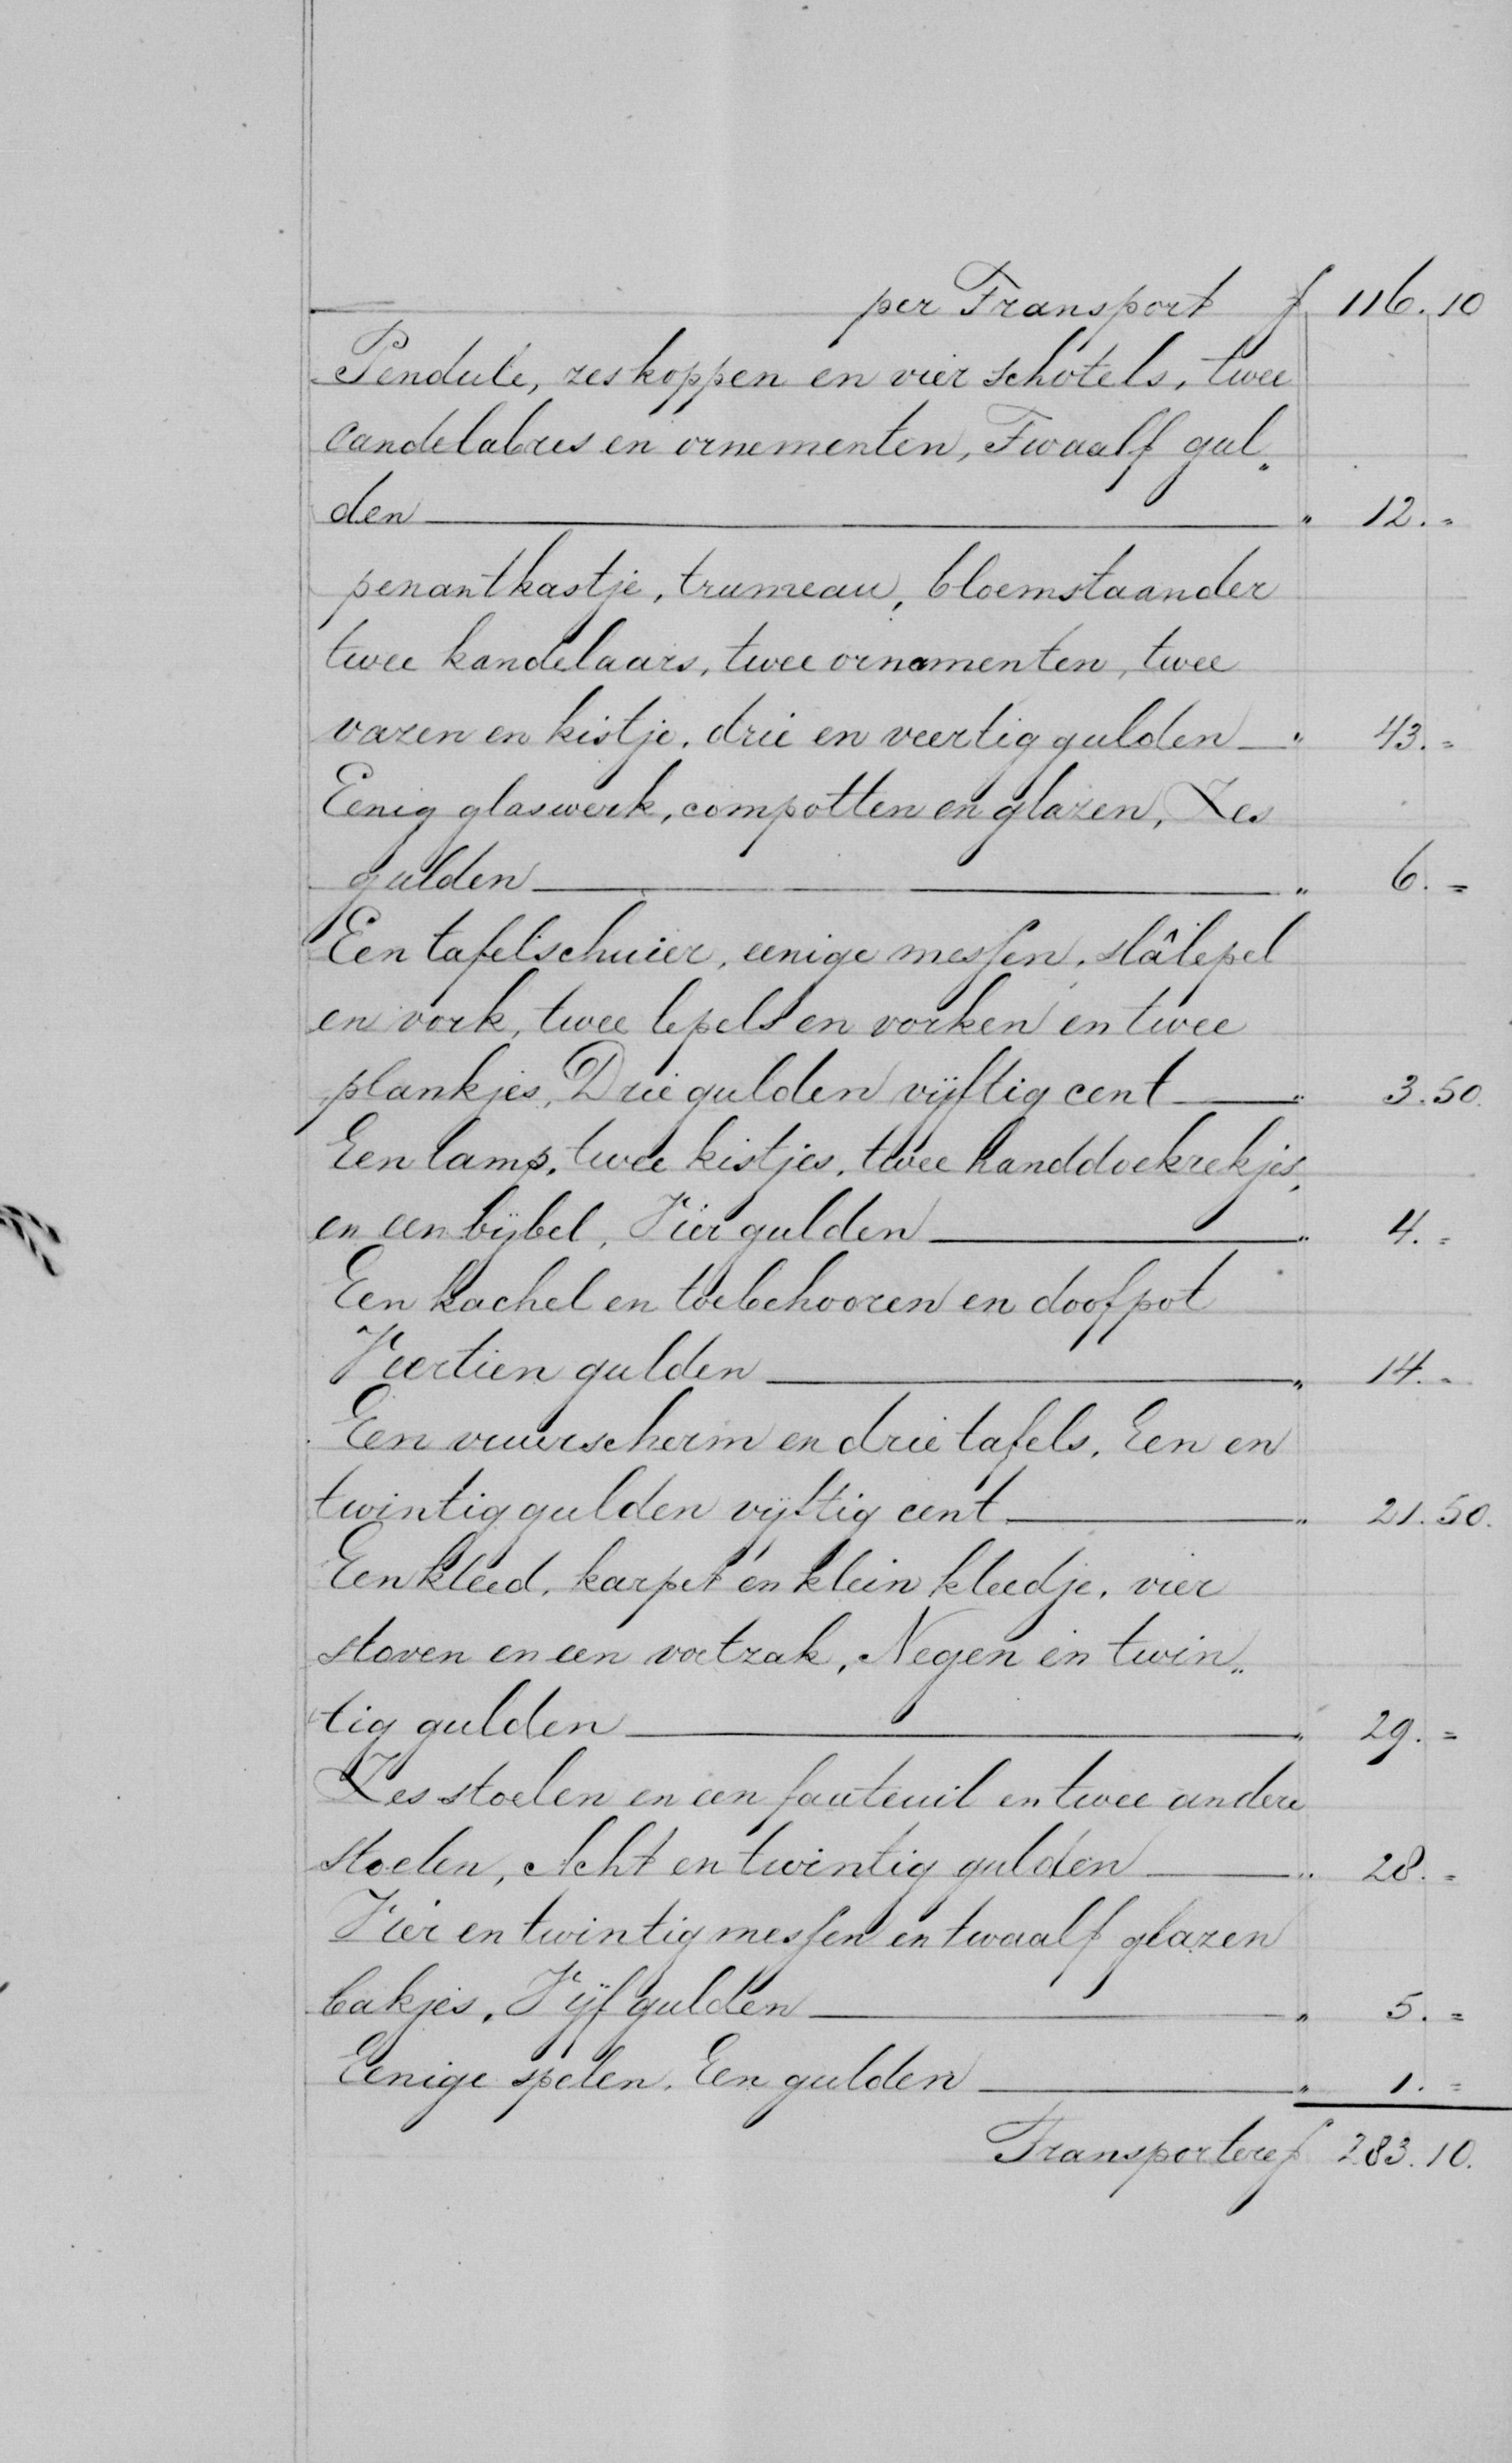 per Transport f 116.10
Pendule, zes koppen en vier schotels, twee
candelabres en ornementen, Twaalf gul„
den " 12.=
penantkastje, trumeau, bloemstaander
twee kandelaars, twee ornamenten, twee
vazen en kistje, drie en veertig gulden " 43.=
Eenig glaswerk, compotten en glazen, Zes
gulden " 6.=
Een tafelschuier, eenige messen, slâlepel
en vork, twee lepels en vorken en twee
plankjes, Drie gulden vijftig cent " 3.50.
Een lamp, twee kistjes, twee handdoekrekjes,
en een bijbel, Vier gulden " 4.=
Een kachel en toebehooren en doofpot
Veertien gulden " 14.=
Een vuurscherm en drie tafels, Een en
twintig gulden vijftig cent " 21.50.
Een kleed, karpet en klein kleedje, vier
stoven en een voetzak, Negen en twin„
tig gulden " 29.=
Zes stoelen en een fauteuil en twee andere
stoelen, Acht en twintig gulden " 28.=
Vier en twintig messen en twaalf glazen
bakjes, Vijf gulden " 5.=
Eenige spelen, Een gulden " 1.=
Transportere f 283.10.